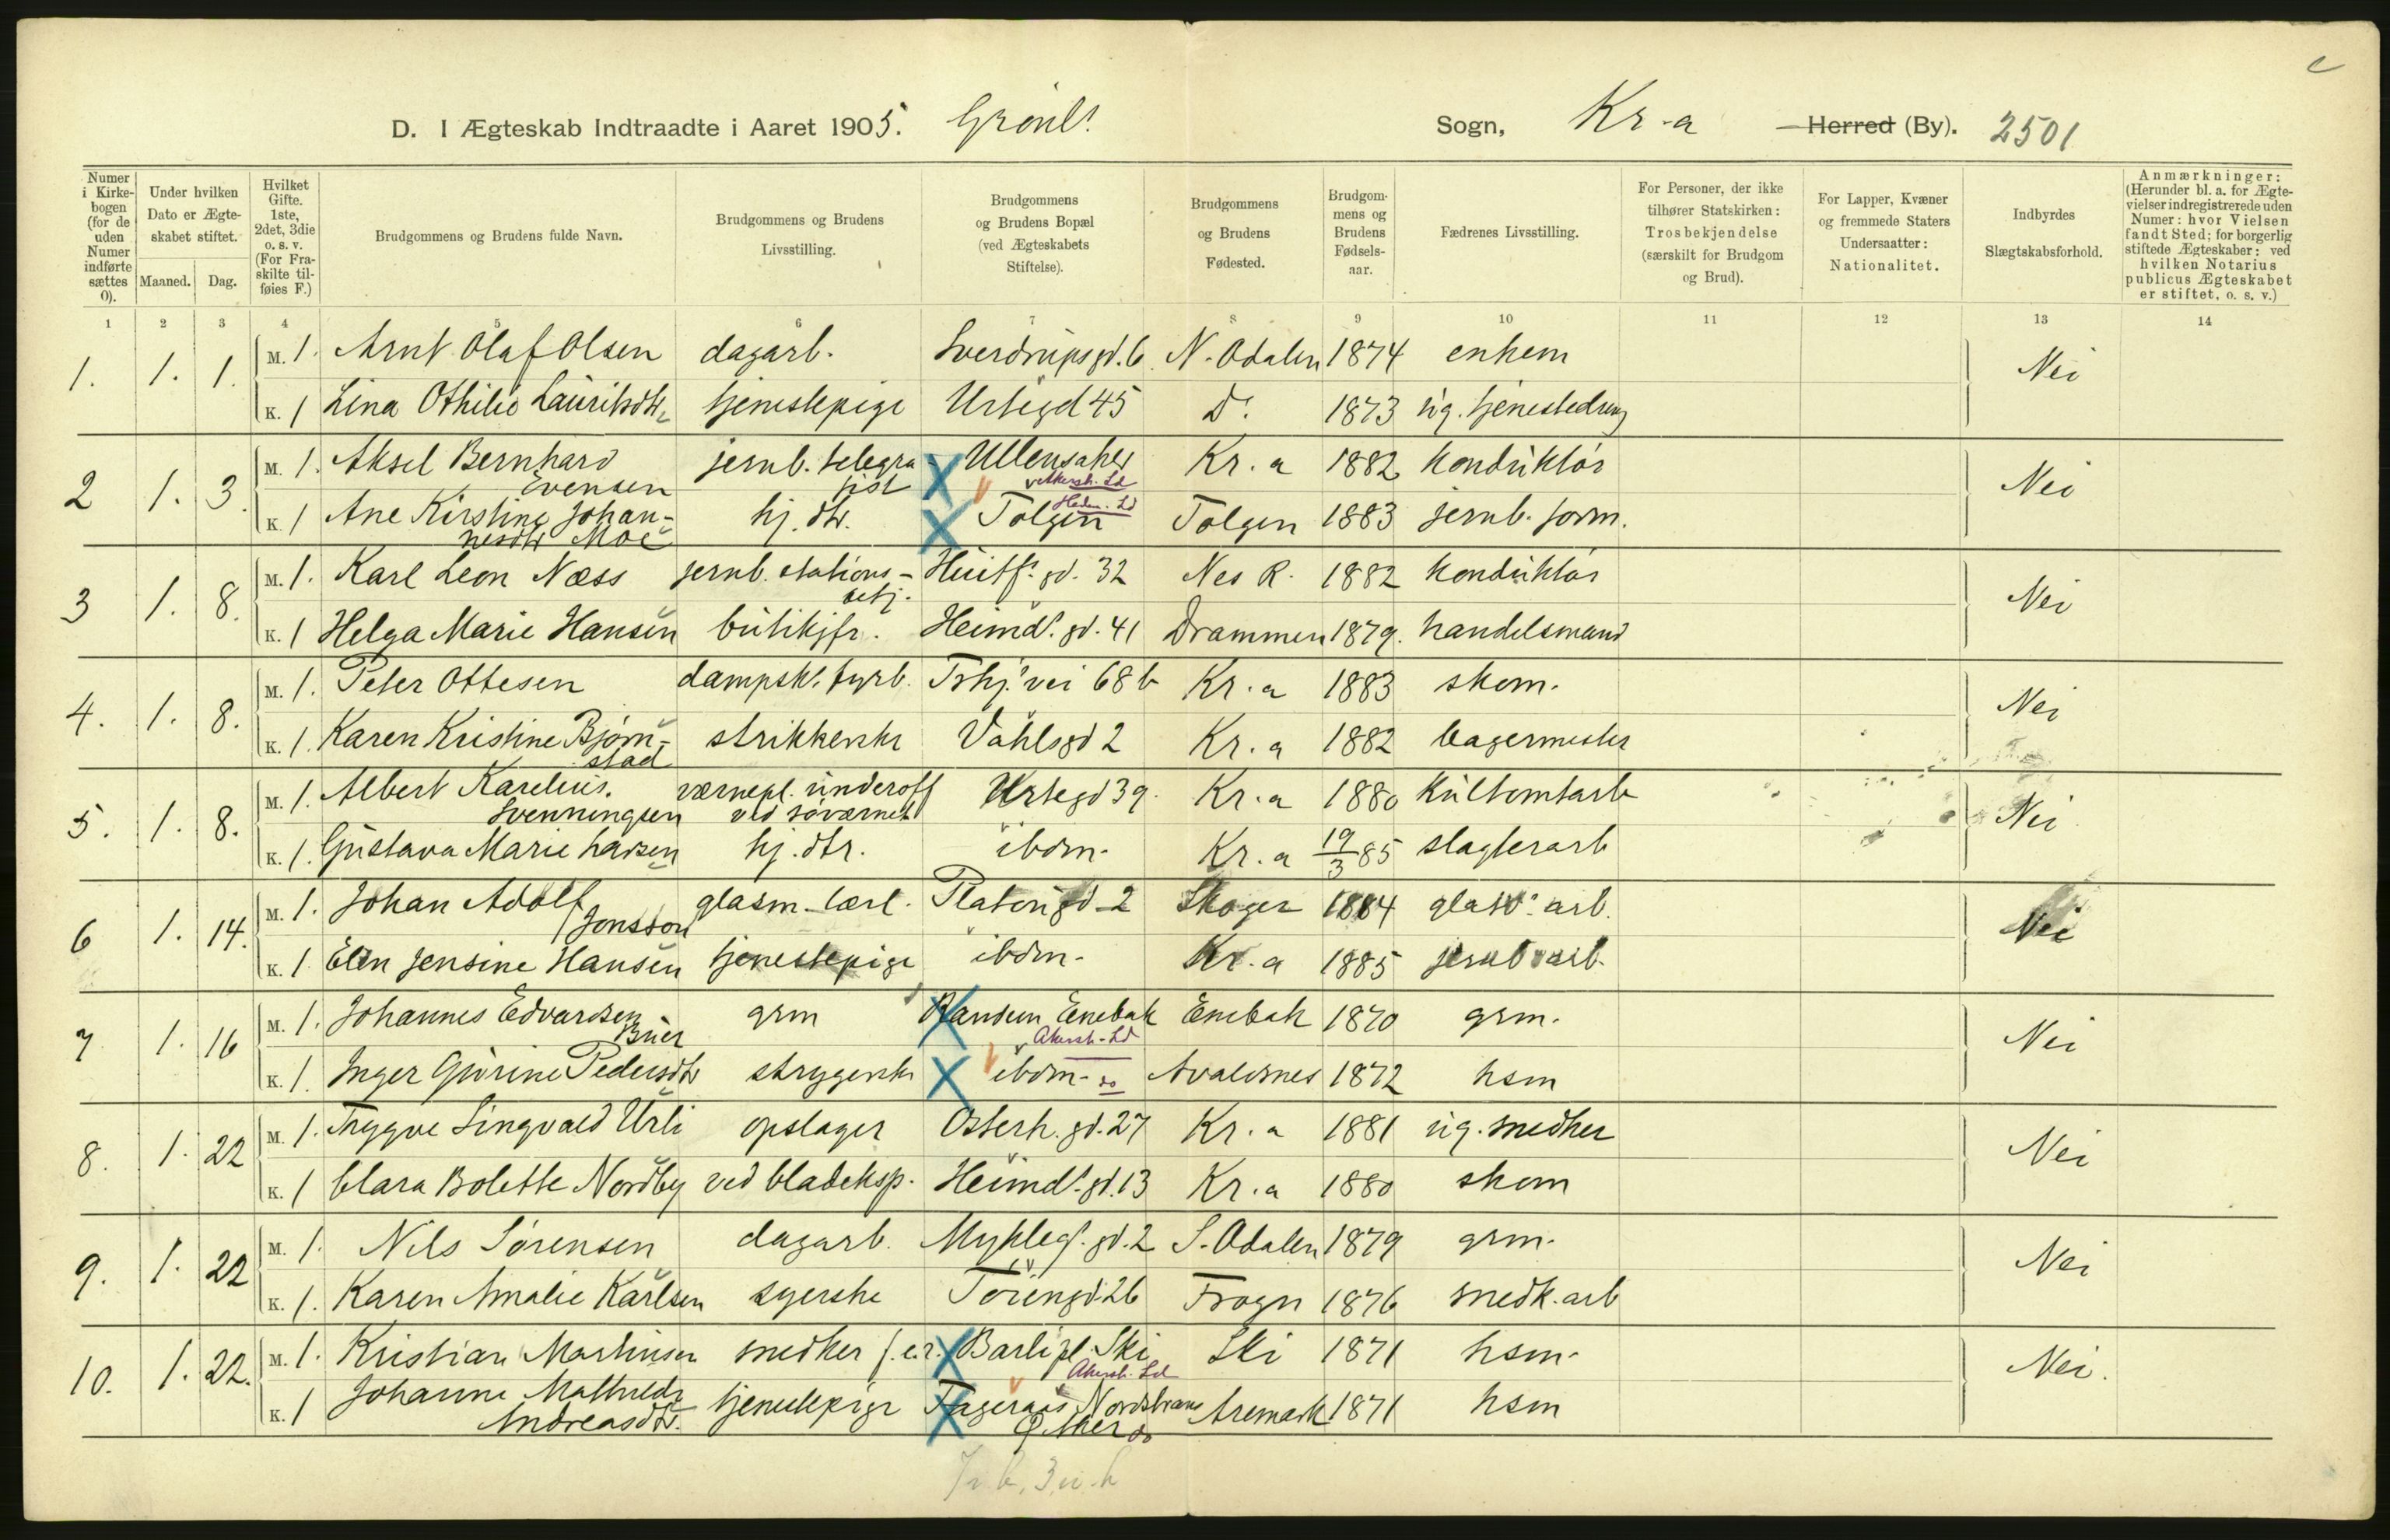 D. I Ægteskab Indtraadte i Aaret 1905. Grønl.s Sogn, Kr-a Herred (By). 2501
Numer i Kirkebogen (for de uden Numer indførte sættes 0).
Under hvilken Dato er Ægteskabet stiftet.
Maaned. Dag.
Hvilket Gifte. 1ste, 2det, 3die o. s. v. (For Fraskilte tilføies F.)
Brudgommens og Brudens fulde Navn.
Brudgommens og Brudens Livsstilling.
Brudgommens og Brudens Bopæl (ved Ægteskabets Stiftelse).
Brudgommens og Brudens Fødested.
Brudgommens og Brudens Fødselsaar.
Fædrenes Livsstilling.
For Personer, der ikke tilhører Statskirken: Trosbekjendelse (særskilt for Brudgom og Brud).
For Lapper, Kvæner og fremmede Staters Undersaatter: Nationalitet.
Indbyrdes Slægtskabsforhold.
Anmærkninger: (Herunder bl. a. for Ægtevielser indregistrerede uden Numer: hvor Vielsen fandt Sted; for borgerlig stiftede Ægteskaber: ved hvilken Notarius publicus Ægteskabet er stiftet, o. s. v.)
1 2 3 4 5 6 7 8 9 10 11 12 13 14
1. 1. 1. M. 1. Arnt Olaf Olsen dagarb. Sverdrupsgd. 6 N. Odalen 1874 enkem Nei
K. 1 Lina Othilie Lauritsdtr tjenestepige Urtegd 45 Do. 1873 ug. tjenestedreng
2 1. 3. M. 1. Aksel Bernhard Evensen jernb. telegrafist Ullensaker Akersh. Ld Kr.a 1882 konduktør Nei
K. 1 Ane Kirstine Johannesdtr Moe hj. dtr. Tolgen Hedm. Ld Tolgen 1883 jernb. form.
3 1. 8. M. 1. Karl Leon Næss jernb. stationsbetj. Huitf.s gd. 32 Nes R. 1882 konduktør Nei
K. 1 Helga Marie Hansen butikjfr. Heimd.s gd. 41 Drammen 1879. handelsmand
4. 1. 8. M. 1. Peter Ottesen dampsk. fyrb. Tskj. vei 68 b Kr.a 1883 skom. Nei
K. 1. Karen Kristine Bjørnstad strikkerske Vahlsgd 2 Kr.a 1882 bagermester
5. 1. 8. M. 1. Albert Karelius Svenningsen værnepl. underoff ved søværnet Urtegd 39. Kr.a 1880 kultomtarb Nei
K. 1. Gustava Marie Larsen hj. dtr. ibdm. Kr.a 19/3 85 slagterarb
6 1. 14. M. 1. Johan Adolf Jonsson glasm. lærl. Platougd. 2 Skoger 1884 glasv. arb. Nei
K. 1 Elen Jensine Hansen tjenestepige ibdm. Kr.a 1885 jernb arb.
7 1. 16 M. 1. Johannes Edvardsen Buer grm Enebak Akersh. Ld Enebak 1870 grm. Nei
K. 1. Inger Gurine Pedersdtr strygerske ibdm. do Avaldsnes 1872 hsm
8. 1. 22 M. 1. Trygve Singvald Urli opslager Osterh. gd. 27 Kr.a 1881 ug. snedker Nei
K. 1 Clara Bolette Nordby ved bladeksp. Heimd.s gd. 13 Kr.a 1880 skom
9. 1. 22 M. 1. Nils Sørensen dagarb. Mykleg.s gd. 2 S. Odalen 1879 grm. Nei
K. 1. Karen Amalie Karlsen syerske Tøiengd. 26 Frogn 1876 snedk. arb
10. 1. 22. M. 1. Kristian Martinsen snedker f. e. r. Barli pl. Ski Akersh. Ld Ski 1871 hsm. Nei.
K. 1 Johanne Mathilde Andreasdtr. tjenestepige Nordstrand Ø. Aker do Aremark 1871 hsm